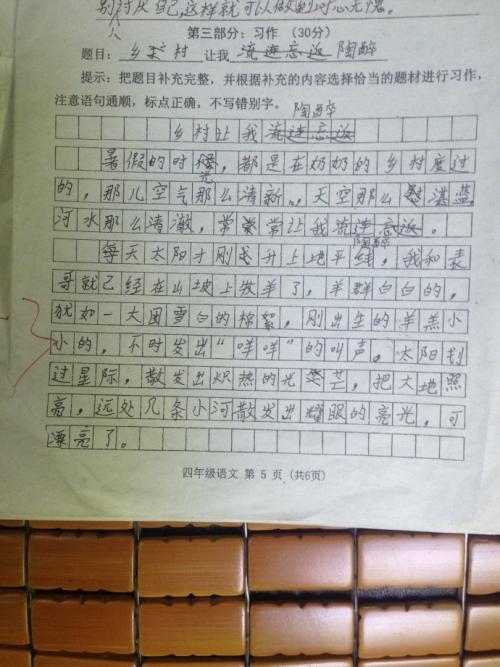 别讨厌自己,这样就可以做到问心无愧。
第三部分:习作 (30分)
题目: 乡村 让我 流连忘返 陶醉
提示:把题目补充完整,并根据补充的内容选择恰当的题材进行习作,
注意语句通顺,标点正确,不写错别字。
陶醉
乡村让我流连忘返
暑假的时光,都是在奶奶的乡村度过
的,那儿空气那么清新,天空那么湛蓝
河水那么清澈,常常让我流连忘返。
陶醉
每天太阳才刚升上地平线,我和表
哥就已经在山坡上放羊了,羊群白白的,
犹如一大团雪白的棉絮,刚出生的羊羔小
小的,不时发出“咩咩”的叫声。太阳划
过星际,散发出炽热的光芒,把大地照
亮,远处几条小河散发出耀眼的亮光,可
漂亮了。
四年级语文 第 5 页 (共6页)